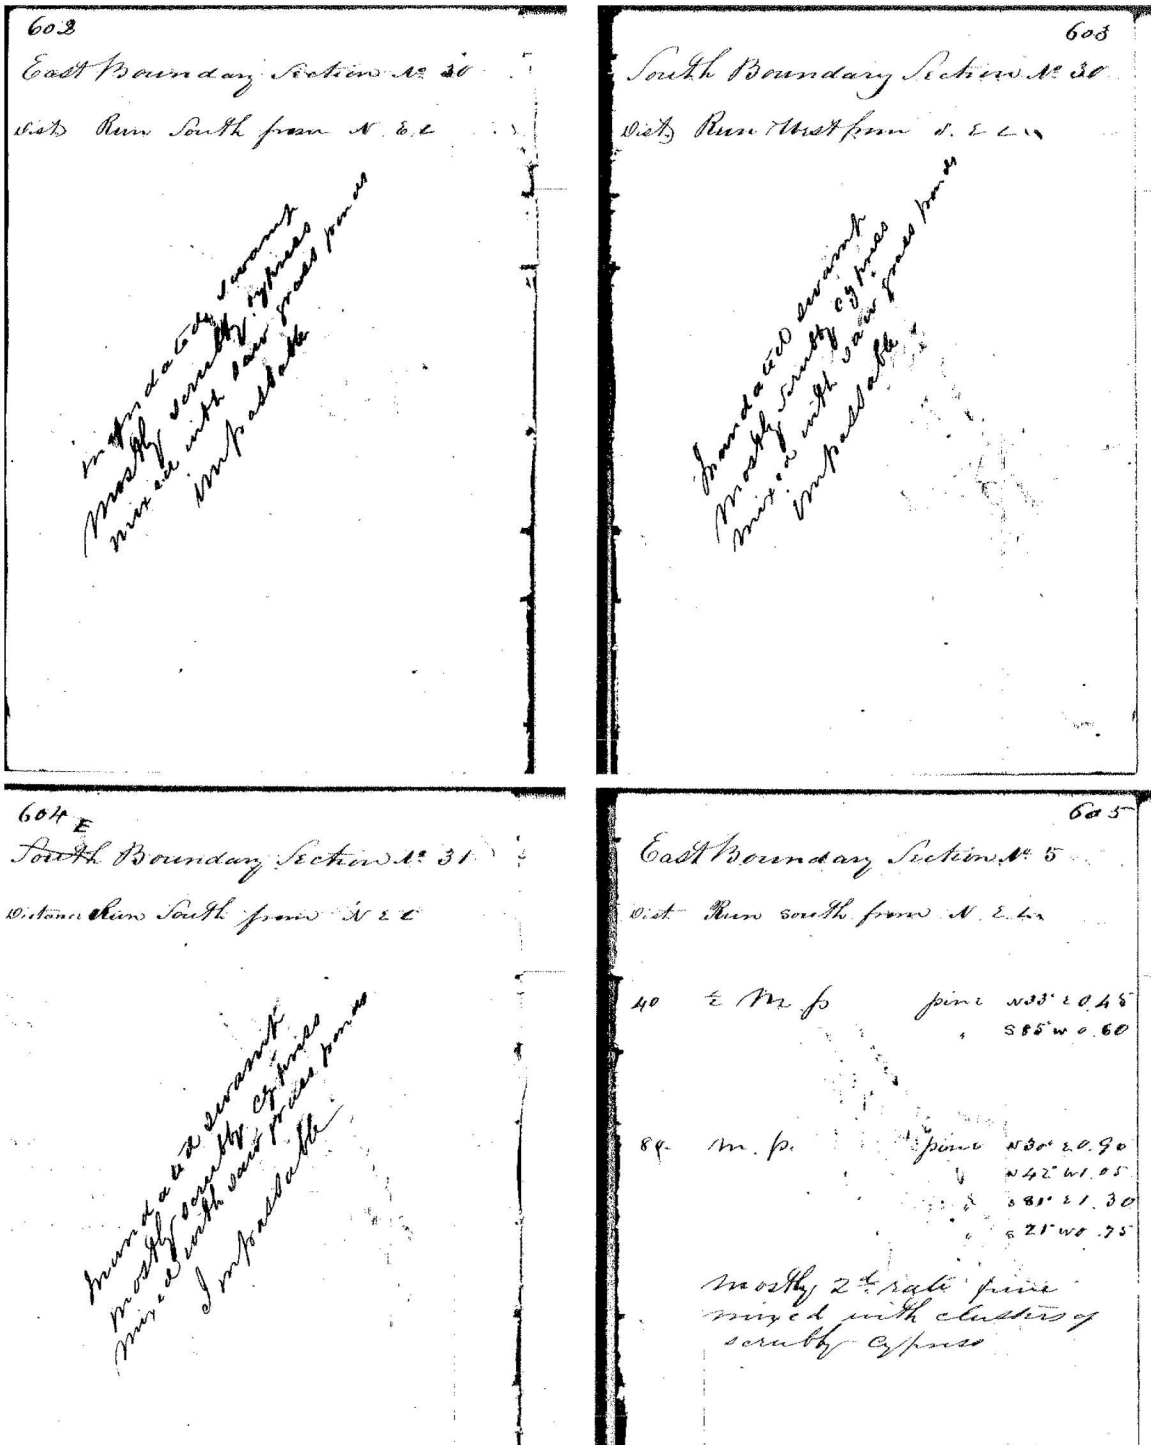 602
East Boundary Section No 30
Dist Run South from N. E. C
inundated swamp
mostly scrubby cypress
mixed with saw grass ponds
impassable
603
South Boundary Section No 30
Dist Run West from S. E C
Inundated swamp
mostly scrubby cypress
mixed with saw grass ponds
impassable
604
E
South Boundary Section No 31
Distance Run South from N E C
Inundated swamp
mostly scrubby cypress
mixed with saw grass ponds
Impassable
605
East Boundary Section No 5
Dist. Run south from N. E. C
40 ½ M p pine N33° E 0.45
" S85 W 0.60
80. m. p. pine N30° E 0.90
" N42 W 1.05
" S81° E 1.30
" S 21° W 0.75
mostly 2d rate pine
mixed with clusters of
scrubby cypress